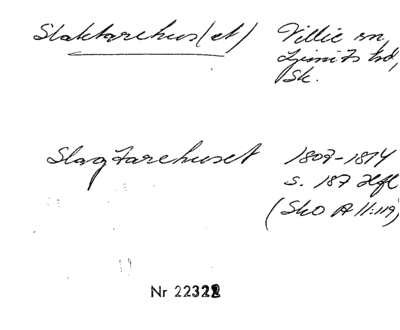 Slaktarehus(et) Villie sn,
Ljunits hd,
Sk.
Slagtarehuset 1807-1814
s. 187 Hfl
(SkO A II:119)
Nr 22322